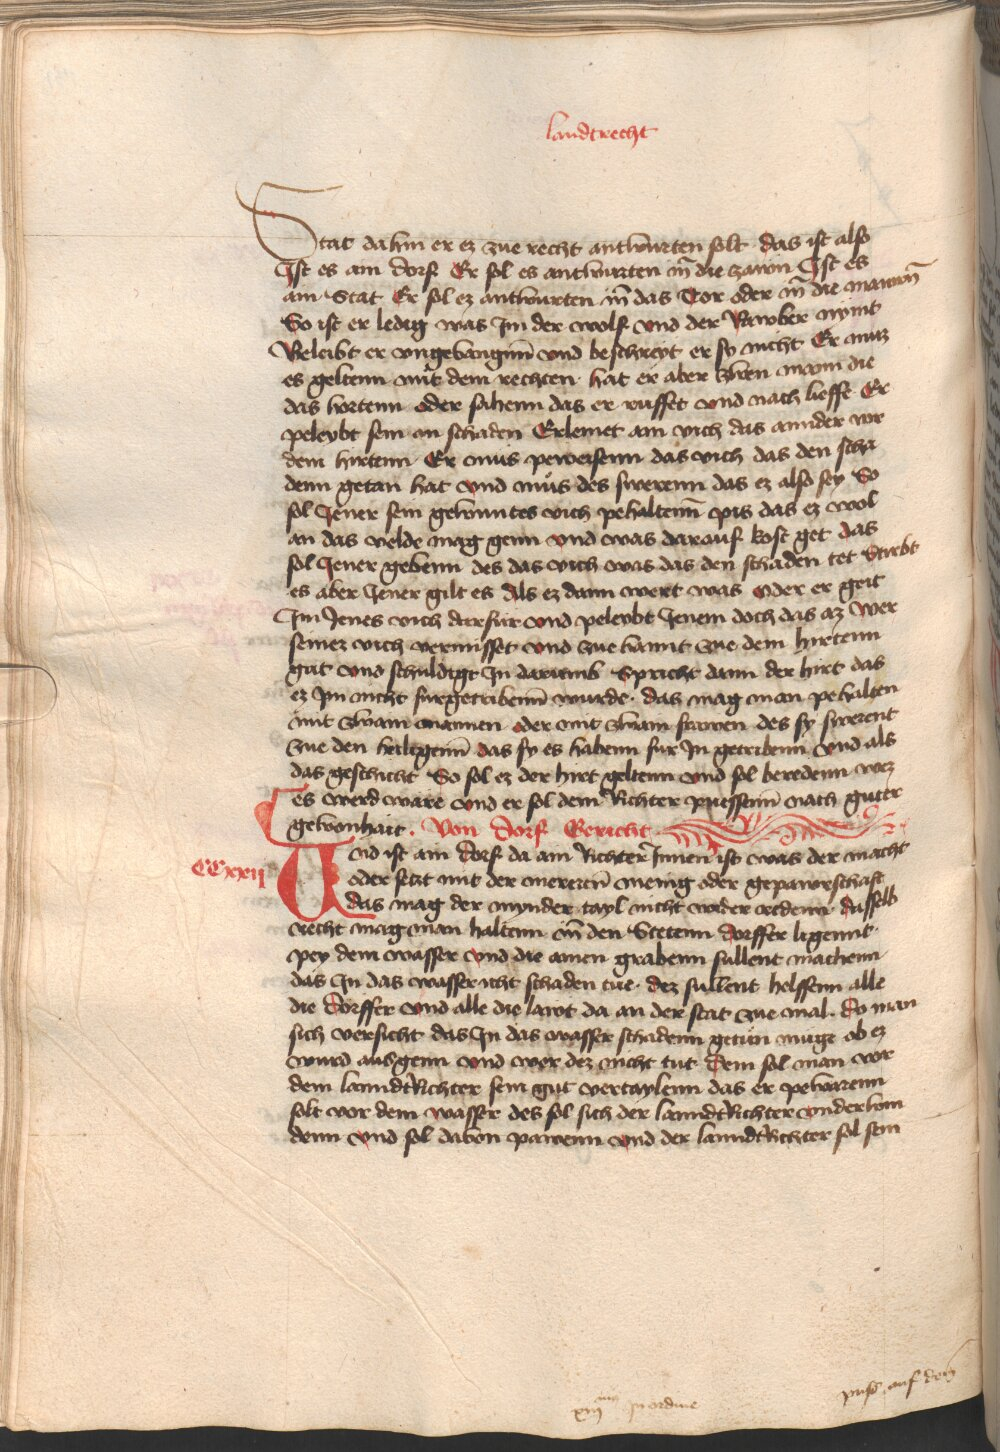 landtrecht
Stat dahin er ez zue recht antwurten solt das ist also
Ist es am dorf Er sol es antwurten in die zawn Ist es
am Stat Er sol ez antwurten in das Tor oder in die mawrn
So ist er ledig was Im der wolf vnd der Rawber nymt
Beleibt er vngevangenn vnd beschreyt er sy nicht Er muz
es geltenn mit dem rechten hat er aber zwen mann die
das hortenn oder sahenn das er rufft vnd nach lieffe Er
peleybt sein an schaden Erlemet ain vich das annder vor
dem hirtenn Er mus peweisenn das vich das den scha
denn getan hat vnd mus des swerenn das ez also sey So
sol Jener sein gewuntes vich pehaltenn pis das ez wol
an das velde mag genn vnd was darauf kost get das
sol Jener gebenn des das vich was das den schaden tet Stirbt
es aber Jener gilt es Als ez dann wert was oder er geit
Im Jenes vich darfür vnd peleybt Jenem doch das az wer
seinez vich vermisset vnd zue hannt zue dem hirtenn
gat vnd schuldigt In darumb Spricht dann der hirt das
ez Im nicht furgetribenn wurde das mag man pehalten
mit zwain mannen oder mit zwain frawen des sy swerent
zue den heiligenn das sy es habenn fur In getribenn vnd als
das geschicht So sol ez der hirt geltenn vnd sol beredenn wez
es werd ware vnd er sol dem Richter puessenn nach guter
gewonhait. Von dorf Gericht
CCxxij
Vnd ist am dorf da ain Richter Innen ist was der macht
oder setzt mit der merernn menig oder gepawrschaft
das mag der mynder tayl nicht wider redenn dasselb
recht mag man haltenn in den Stetenn dorffer ligennt
pey dem wasser vnd die ainen grabenn sullent machenn
das In das wasser icht schaden tue dez sullent helffenn alle
die dorffer vnd alle die lawt da an der stat zue mal. do man
sich versicht das In das wasser schadenn getun muge ob ez
wurd ausgenn vnd wer dez nicht tut dem sol man vor
dem lanndtRichter sein gut vertaylenn das er pewarenn
solt vor dem wasser des sol sich der lanndtRichter vnderwin
denn vnd sol dauon pawenn vnd der lanndtRichter sol sein